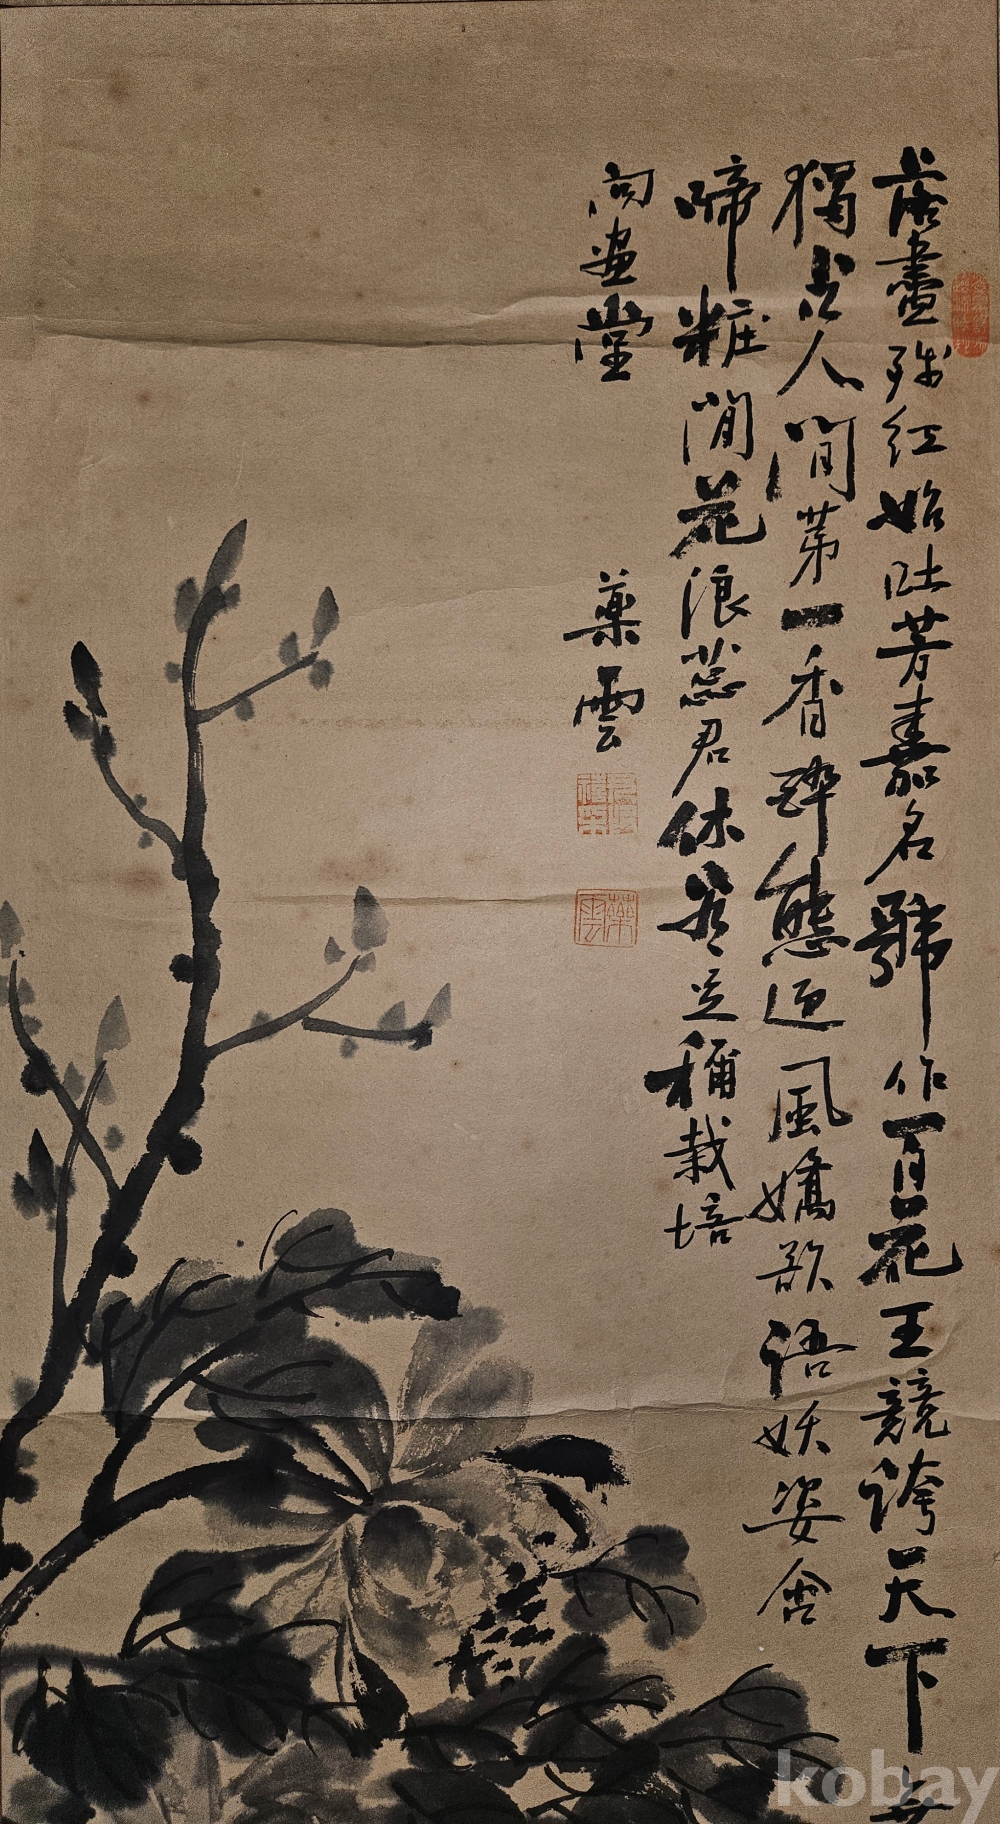 落盡殘紅始吐芳嘉名號作百花王競誇天下
獨占人間第一香醉態迎風嬌欲語妖姿含
啼粧閒花浪蕊君休稱栽培
向畫堂
藥雲
藥雲
kobay